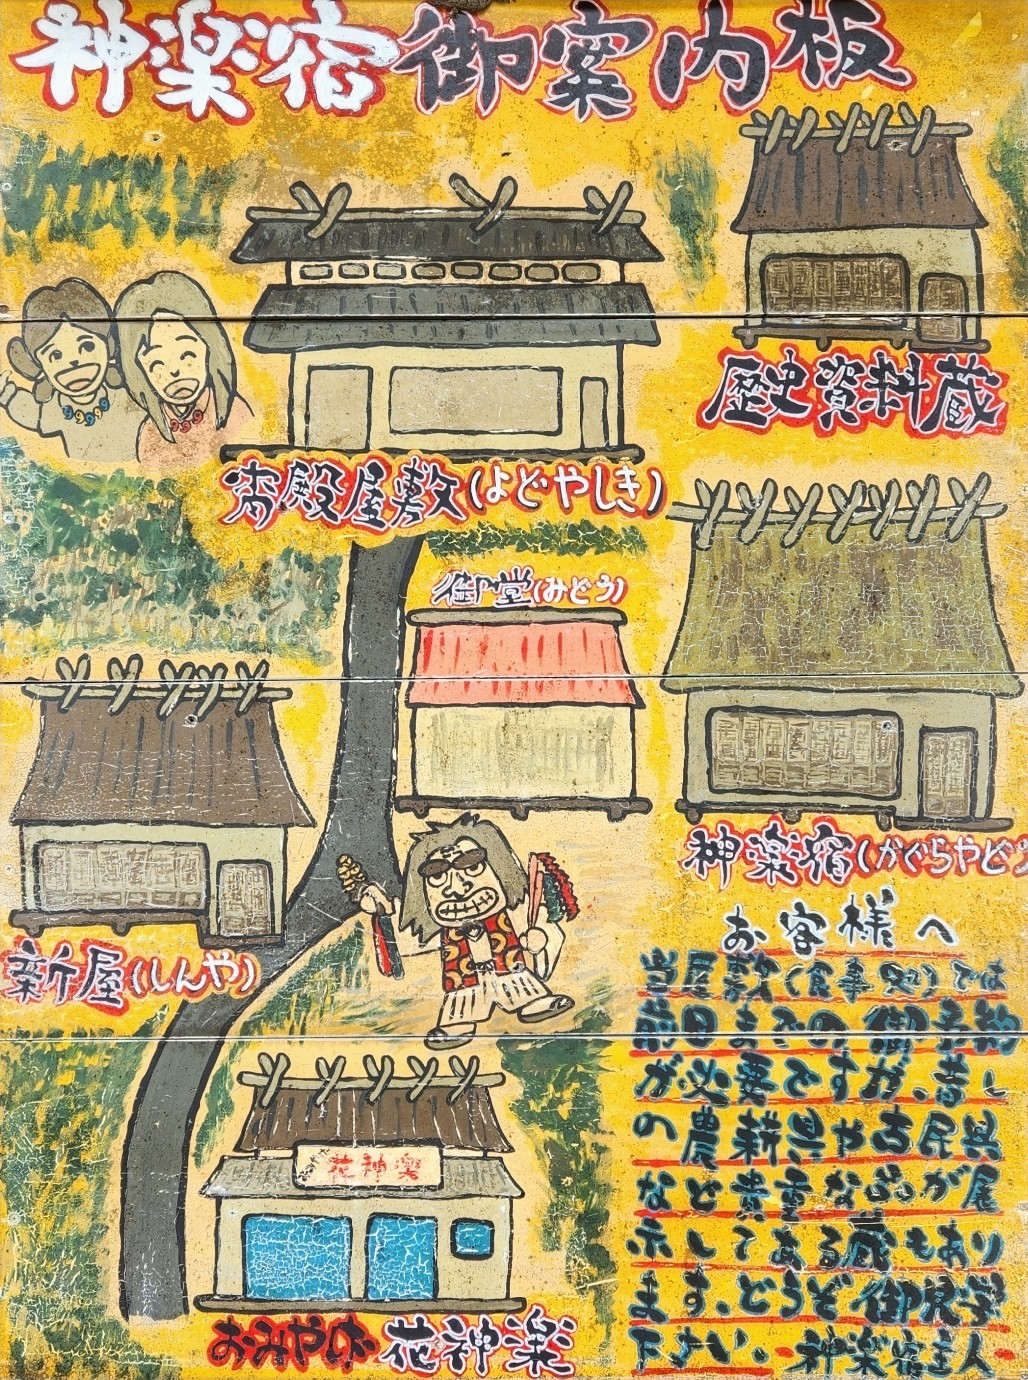 神楽宿御案内板
歴史資料蔵
宵殿屋敷(よどやしき)
御堂(みどう)
神楽宿(かぐらやど
新屋(しんや)
お客様へ
当屋敷(食事処)では
前日までの御予約
が必要とすが、昔し
の農耕具や古民具
など貴重な品が展
示してある蔵もあり
ます、どうぞ御見学
下さい。-神楽宿主人-
花神楽
おみやげ 花神楽